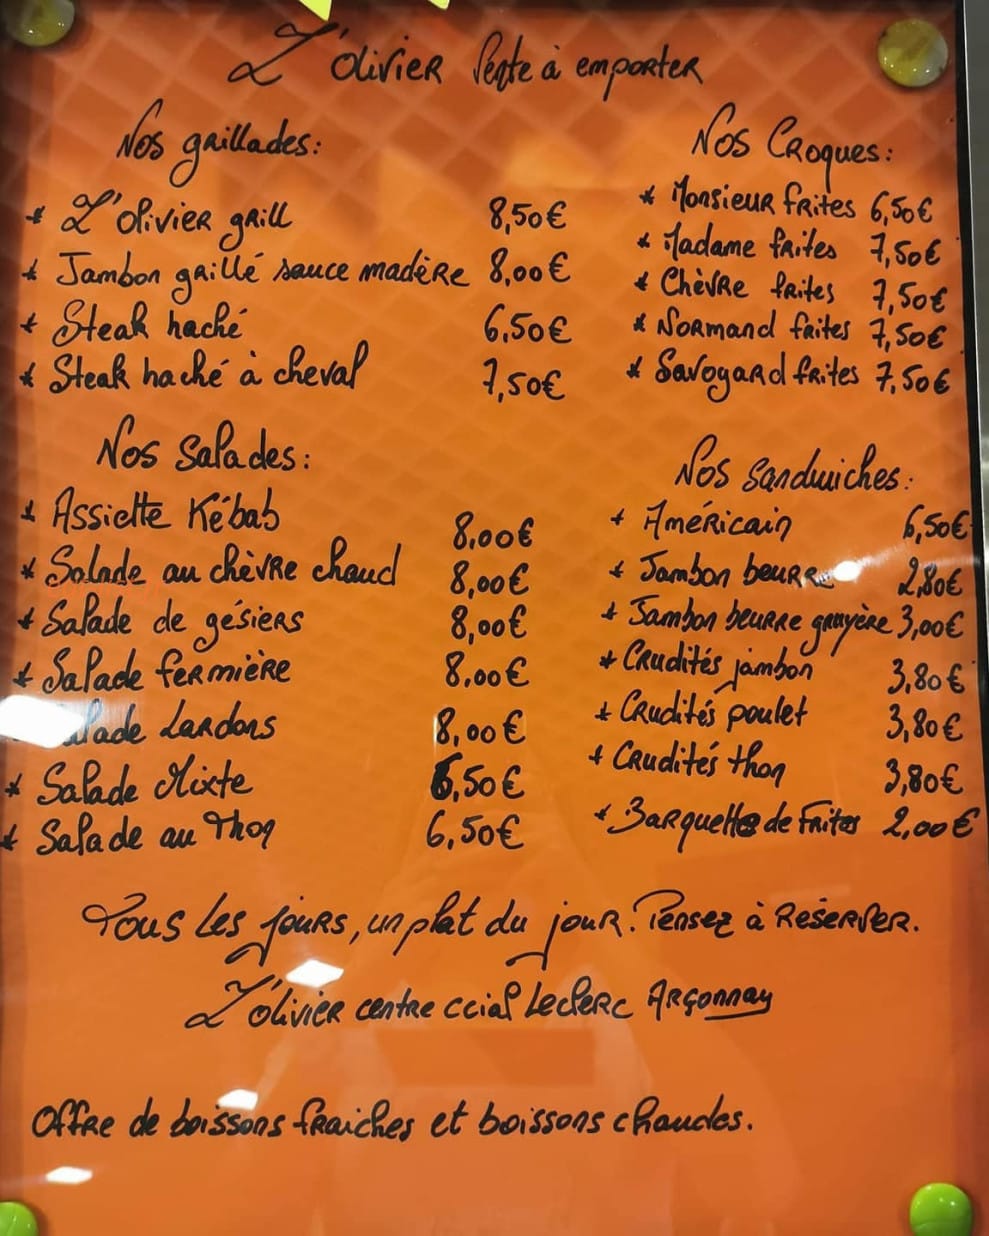 L'olivier Vente à emporter
Nos grillades:
* L'olivier grill 8,50€
* Jambon grillé sauce madère 8,00€
* Steak haché 6,50€
* Steak haché à cheval 7,50€
Nos Salades:
* Assiette Kébab 8,00€
* Salade au chèvre chaud 8,00€
* Salade de gésiers 8,00€
* Salade fermière 8,00€
lade Lardons 8,00€
* Salade Mixte 6,50€
* Salade au Thon 6,50€
Nos Croques:
* Monsieur frites 6,50€
* Madame frites 7,50€
* Chèvre frites 7,50€
* Normand frites 7,50€
* Savoyard frites 7,50€
Nos Sandwiches:
* Américain 6,50€
* Jambon beurre 2,80€
* Jambon beurre gruyère 3,00€
* Crudités jambon 3,80€
* Crudités poulet 3,80€
* Crudités thon 3,80€
* Barquette de Frites 2,00€
Tous les jours, un plat du jour. Pensez à Reserver.
L'olivier centre ccial Leclerc Argonnay
Offre de boissons fraiches et boissons chaudes.